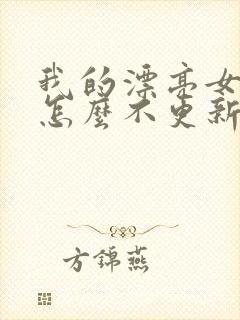 我的漂亮女
怎麼不更新
方錦燕